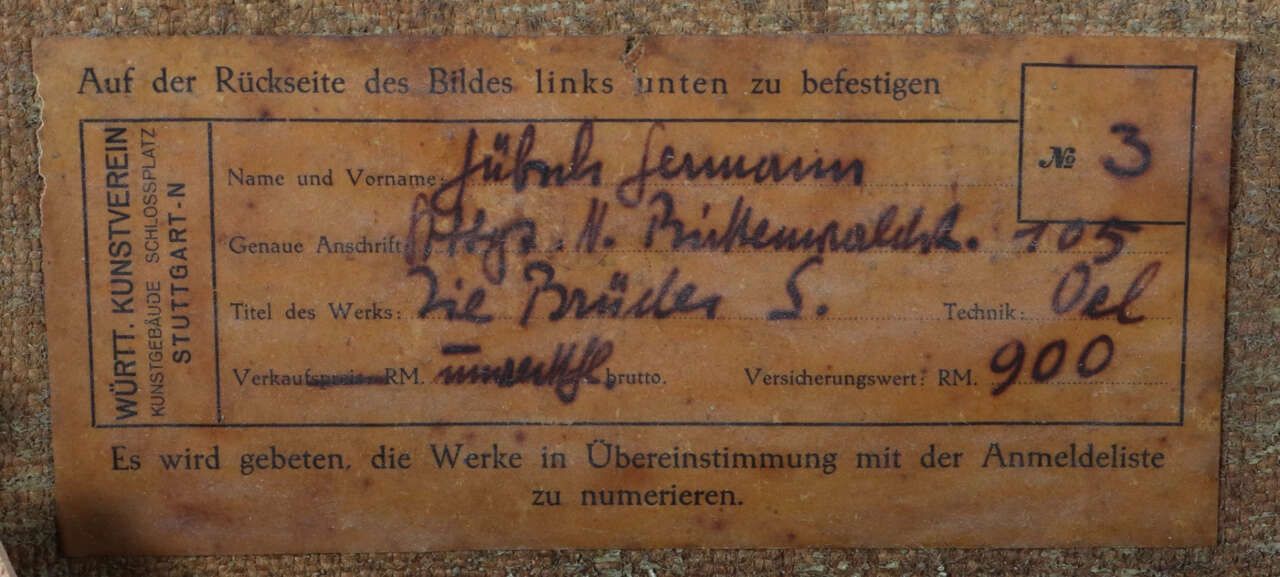 Auf der Rückseite des Bildes links unten zu befestigen
WÜRTT. KUNSTVEREIN
KUNSTGEBÄUDE SCHLOSSPLATZ
STUTTGART-N
№ 3
Name und Vorname: Hübsch Hermann
Genaue Anschrift: Stgt. N. Birkenwaldst. 105
Titel des Werks: Die Brüder S. Technik: Oel
Verkaufspreis RM. brutto. Versicherungswert: RM. 900
Es wird gebeten, die Werke in Übereinstimmung mit der Anmeldeliste
zu numerieren.